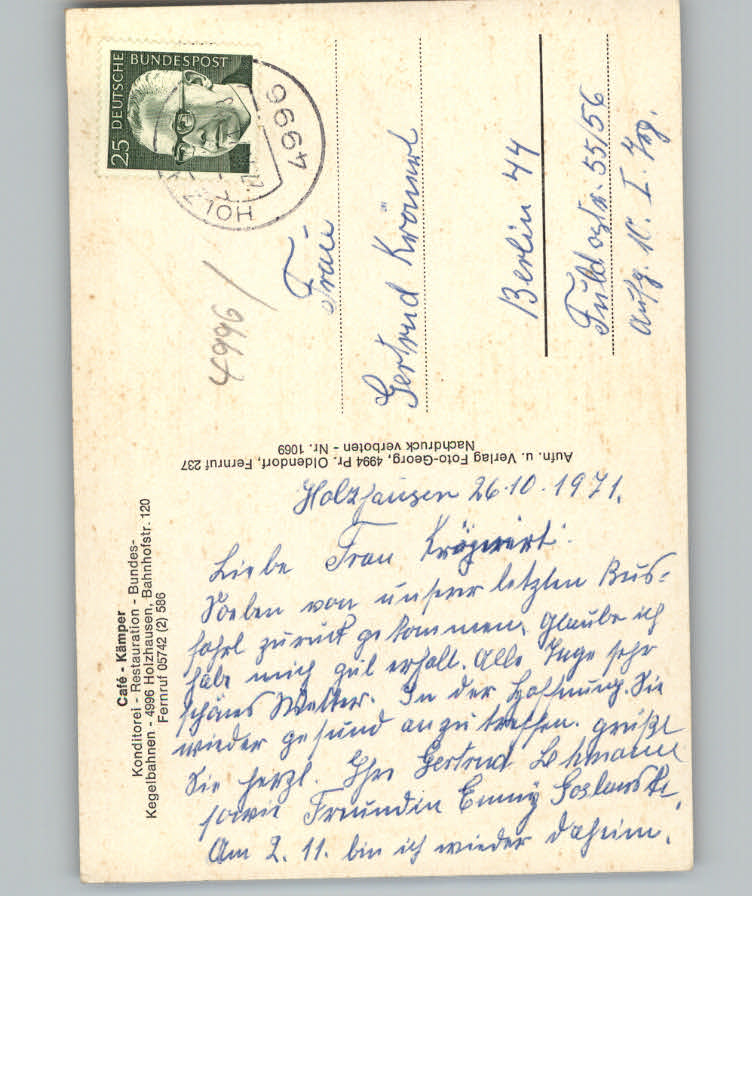 Café - Kämper
Konditorei - Restauration - Bundes-
Kegelbahnen - 4996 Holzhausen, Bahnhofstr. 120
Fernruf 05742 (2) 586
Holzhausen 26.10.1971.
Liebe Frau
Soeben von unserer letzten Bus=
fahrt zurück gekommen. Glaube ich
habe mich gut erholt. Alle Tage sehr
schönes Wetter. In der Hoffnung Sie
wieder gesund anzutreffen. grüßt
Sie herzl. Ihre Gertrud
sowie Freundin Emmy
Am 2. 11. bin ich wieder daheim.
Aufn. u. Verlag Foto-Georg, 4994 Pr. Oldendorf, Fernruf 237
Nachdruck verboten - Nr. 1069
25 DEUTSCHE BUNDESPOST
4996
HOLZ
4996 /
Frau
Gertrud
Berlin 44
Fuldastr. 55/56
Aufg. I.